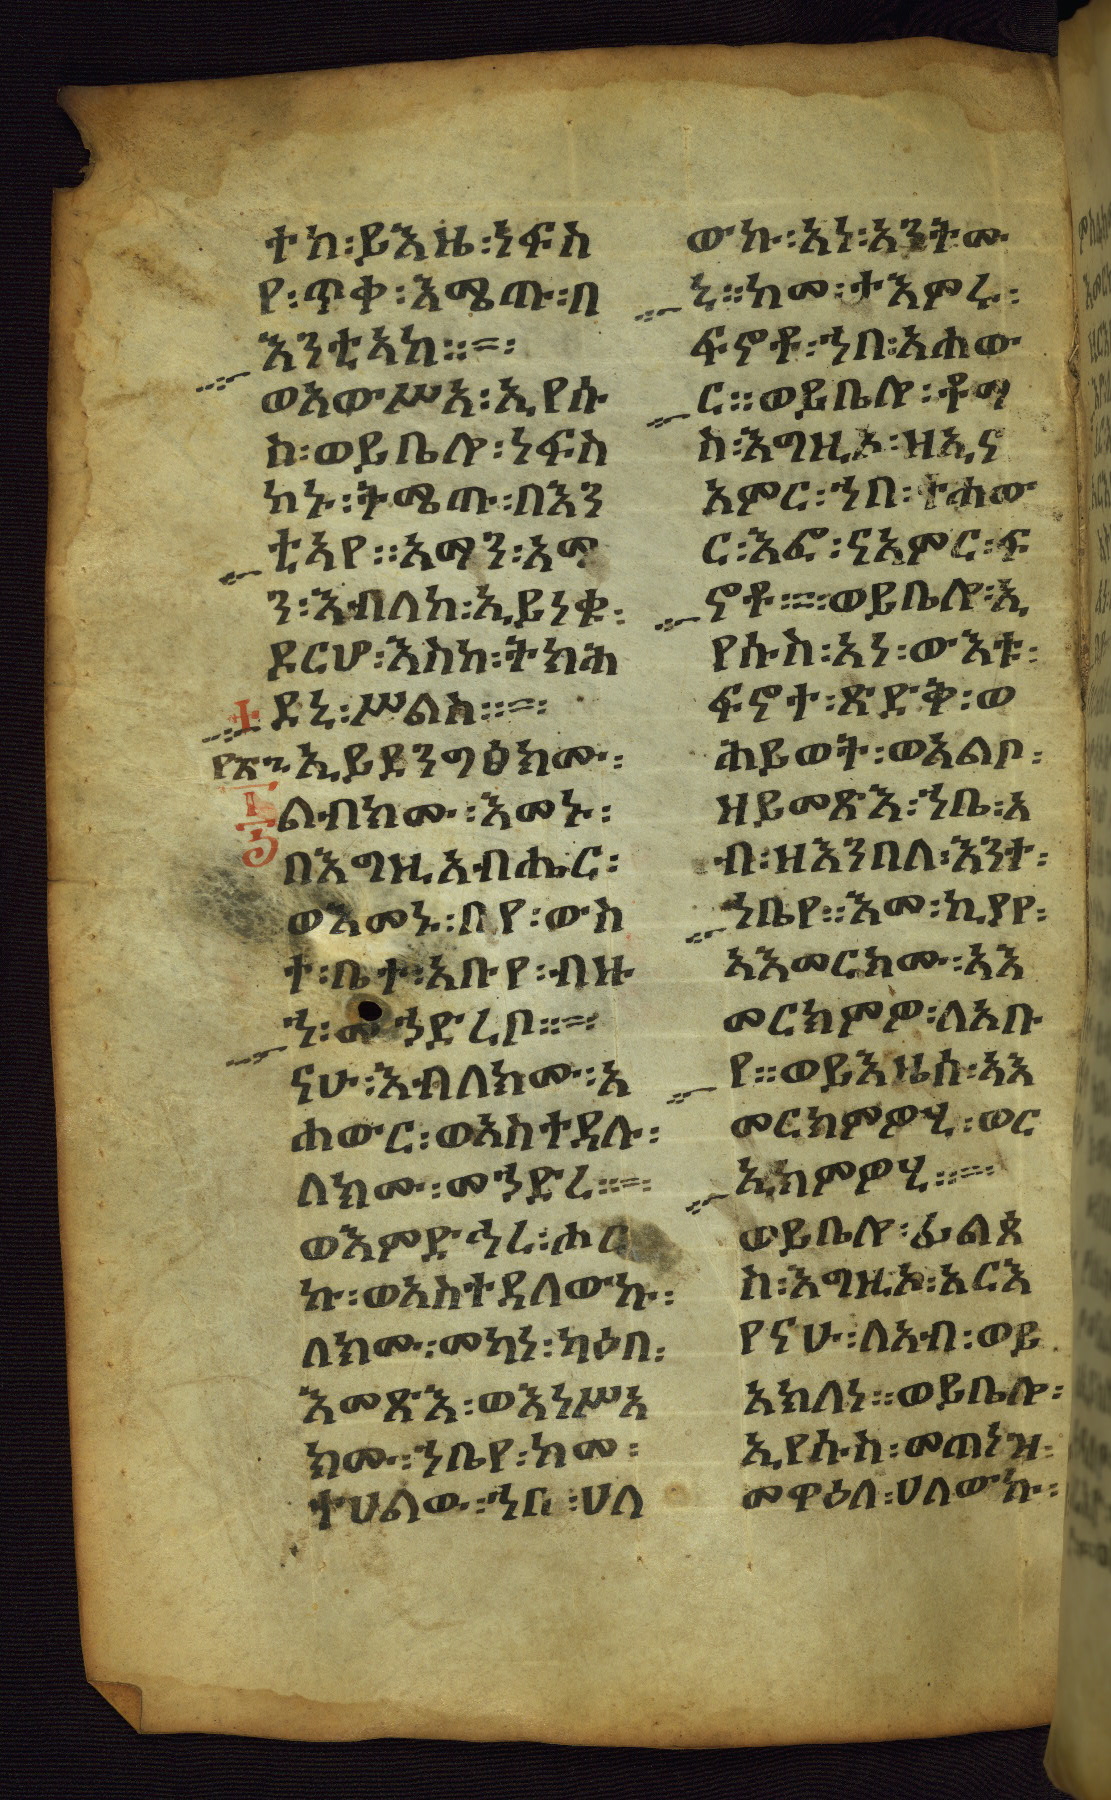 ተከ፡ይእዜ፡ነፍስ
የ፡ጥቀ፡እሜጡ፡በ
እንቲአከ።=፡
ወአውሥአ፡ኢየሱ
ስ፡ወይቤሎ፡ነፍስ
ከኑ፡ትሜጡ፡በእን
ቲአየ።አማን፡አማ
ን፡እብለከ፡ኢይነቁ፡
ደርሆ፡እስከ፡ትክሕ
ደኒ፡ሥልሰ።=፡
ኢይደንግፅክሙ፡
ልብክሙ፡እመኑ፡
በእግዚአብሔር፡
ወእመኑ፡በየ፡ውስ
ተ፡ቤተ፡አቡየ፡ብዙ
ኀ፡ማኅድረ፡ቦ።=፡
ናሁ፡እብለክሙ፡አ
ሐውር፡ወአስተዳሉ፡
ለክሙ፡መኀድረ።=፡
ወእምድኅረ፡ሖር
ኩ፡ወአስተዳለውኩ፡
ለክሙ፡መካነ፡ካዕበ፡
እመጽእ፡ወእነሥአ
ክሙ፡ኀቤየ፡ከመ፡
ተሀልው፡ኀበ፡ሀለ
ውኩ፡አነ፡አንትሙ
ኒ።ከመ፡ተአምሩ፡
ፍኖቶ፡ኀበ፡አሐው
ር።ወይቤሎ፡ቶማ
ስ፡እግዚኦ፡ዘኢና
አምር፡ኀበ፡ተሐው
ር፡እፎ፡ናአምር፡ፍ
ኖቶ።=፡ወይቤሎ፡ኢ
የሱስ፡አነ፡ውእቱ፡
ፍኖተ፡ጽድቅ፡ወ
ሕይወት፡ወአልቦ፡
ዘይመጽእ፡ኀቤ፡አ
ብ፡ዘእንበለ፡እንተ፡
ኀቤየ።እመ፡ኪያየ፡
አእመርክሙ፡አእ
መርክምዎ፡ለአቡ
የ።ወይእዜሰ፡አእ
መርክምዎሂ፡ወር
ኢክምዎሂ።=፡
ወይቤሎ፡ፊልጶ
ስ፡እግዚኦ፡አርእ
የናሁ፡ለአብ፡ወይ
አክለነ።ወይቤሎ፡
ኢየሱስ፡መጠነዝ፡
መዋዕለ፡ሀለውኩ፡